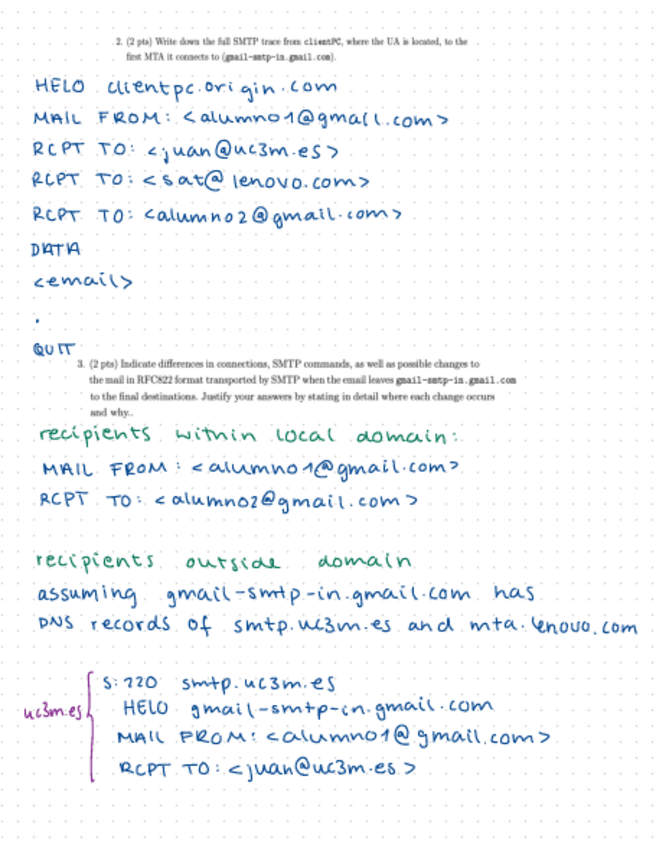 2. (2 pts) Write down the full SMTP trace from clientPC, where the UA is located, to the
first MTA it connects to (gmail-smtp-in.gmail.com).
HELO clientpc.origin.com
MAIL FROM: <alumno1@gmail.com>
RCPT TO: <juan@uc3m.es>
RCPT TO: <sat@lenovo.com>
RCPT TO: <alumno2@gmail.com>
DATA
<email>
.
QUIT
3. (2 pts) Indicate differences in connections, SMTP commands, as well as possible changes to
the mail in RFC822 format transported by SMTP when the email leaves gmail-smtp-in.gmail.com
to the final destinations. Justify your answers by stating in detail where each change occurs
and why..
recipients within local domain:
MAIL FROM: <alumno1@gmail.com>
RCPT TO: <alumno2@gmail.com>
recipients outside domain
assuming gmail-smtp-in.gmail.com has
DNS records of smtp.uc3m.es and mta.lenovo.com
uc3m.es
S: 220 smtp.uc3m.es
HELO gmail-smtp-in.gmail.com
MAIL FROM: <alumno1@gmail.com>
RCPT TO: <juan@uc3m.es>